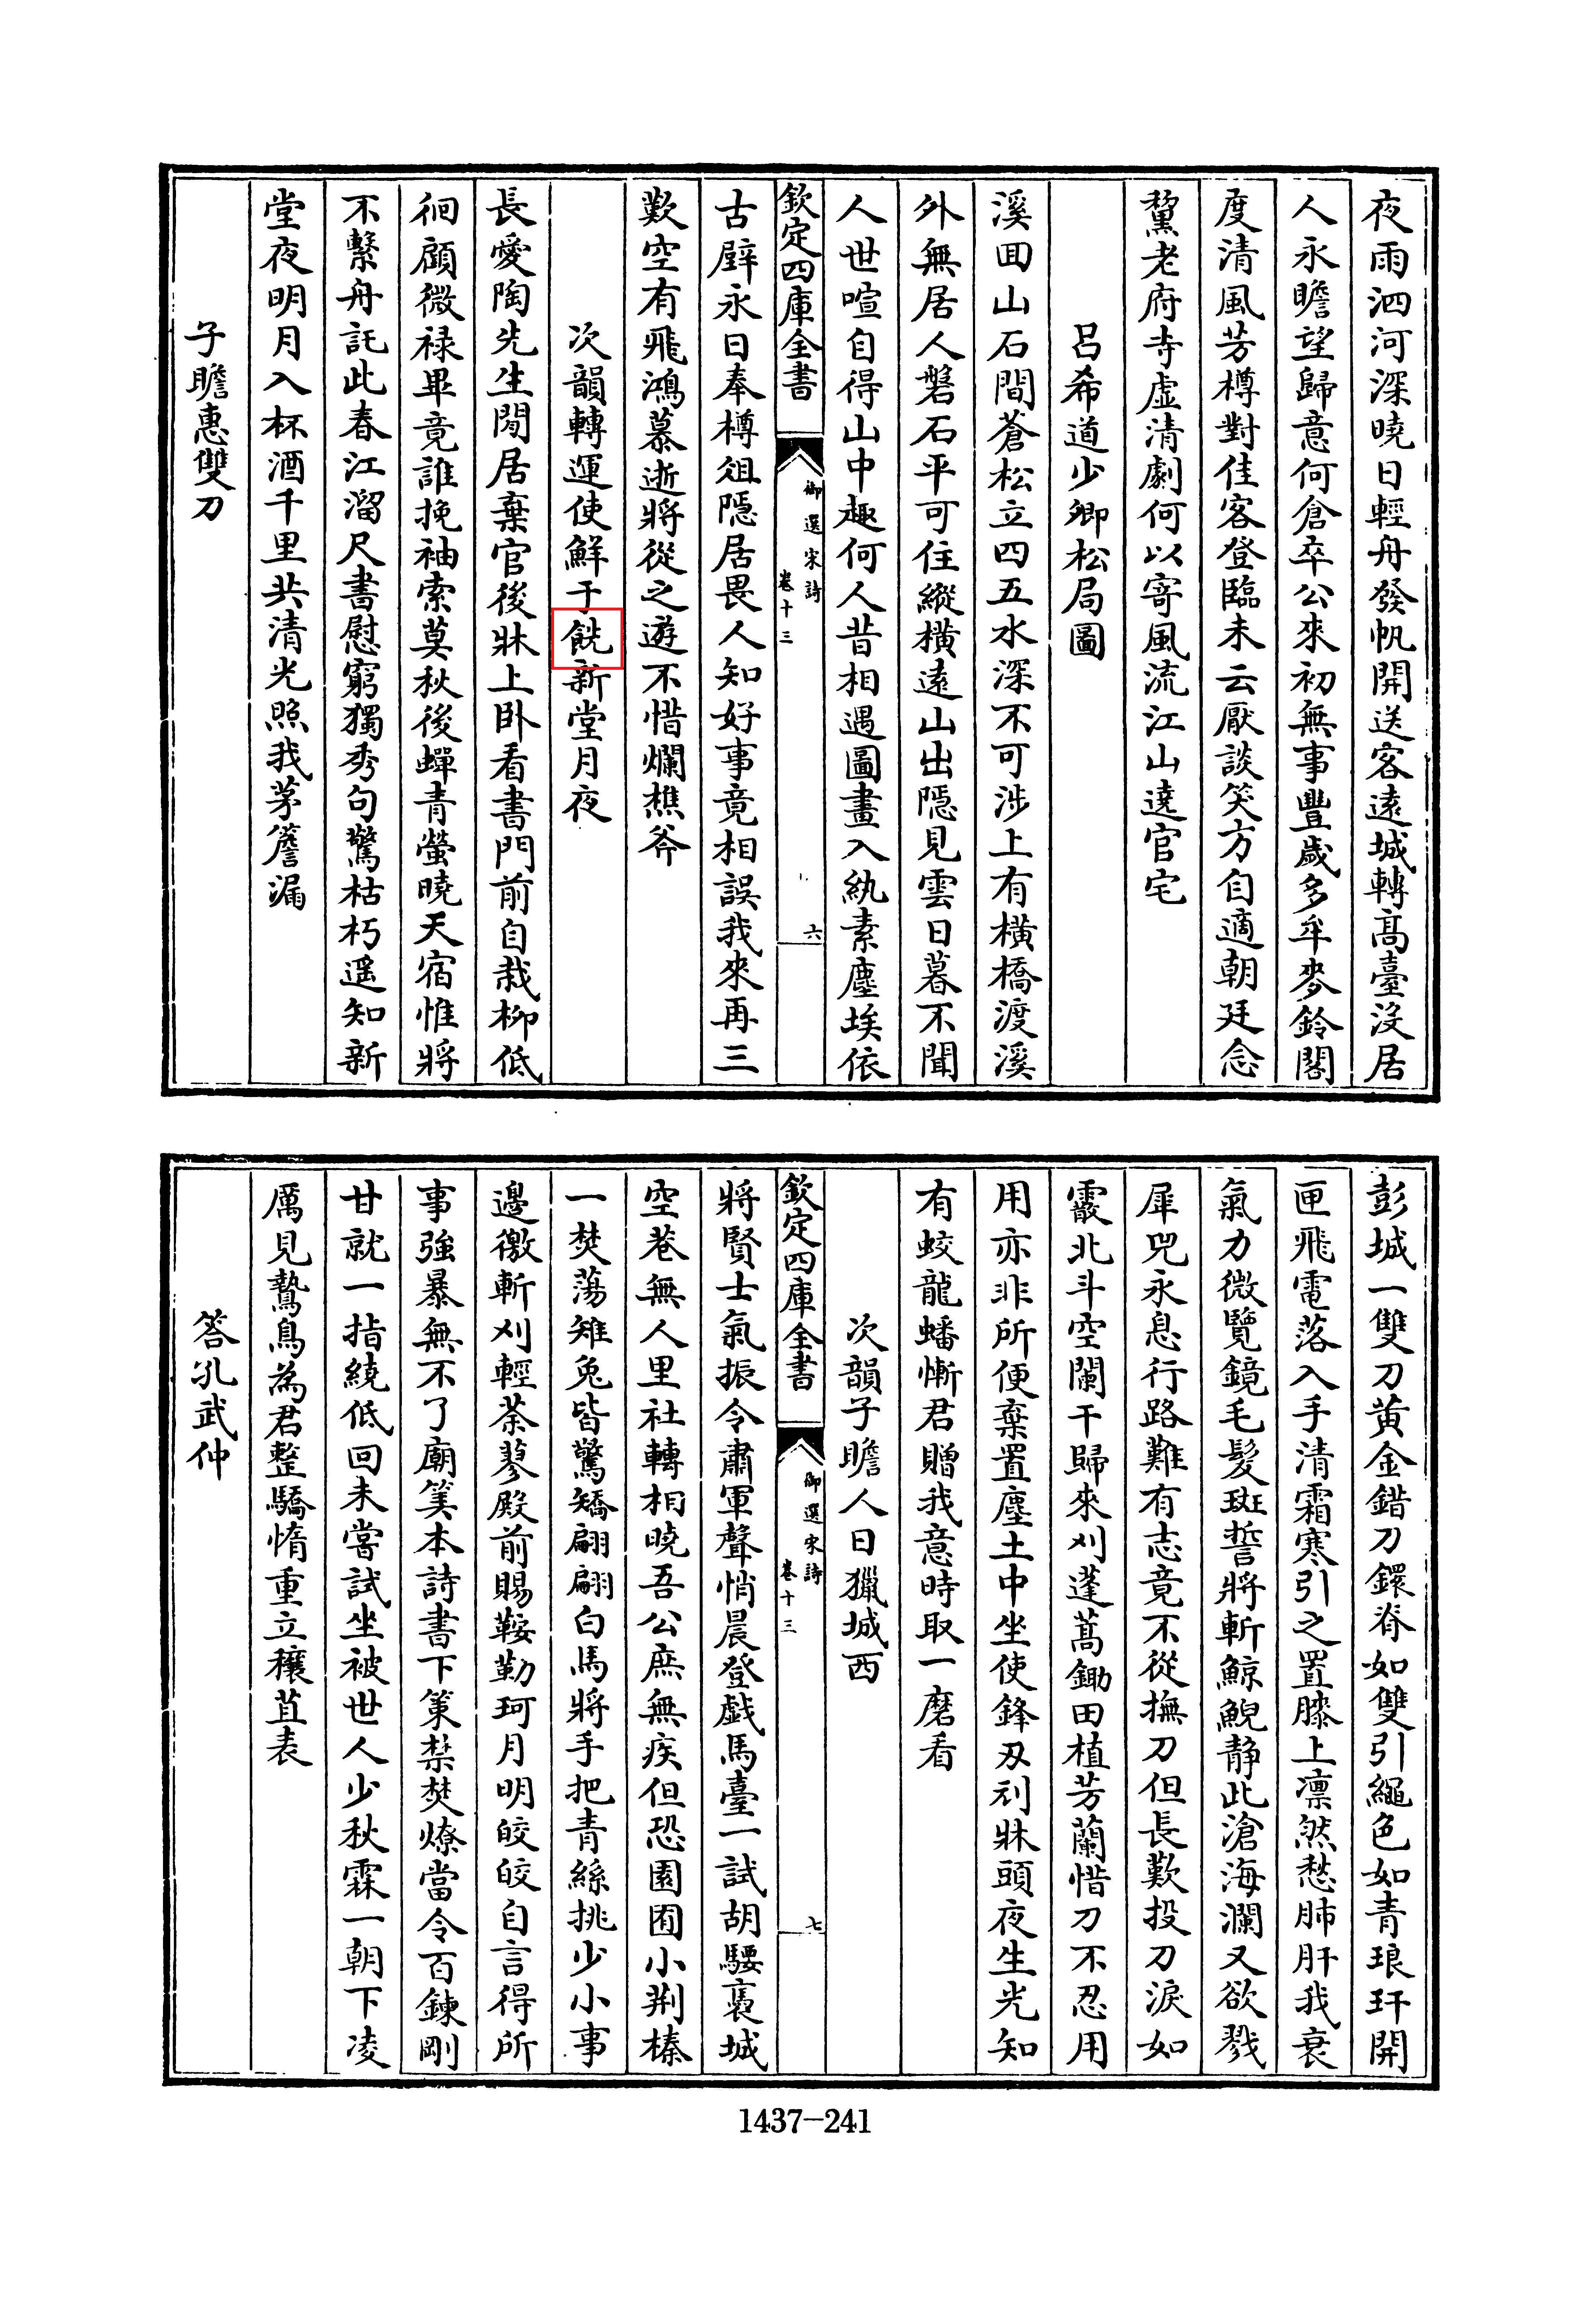 夜雨泗河深曉日輕舟發帆開送客遠城轉高臺沒居
人永瞻望歸意何倉卒公來初無事豐歲多牟麥鈴閣
度清風芳樽對佳客登臨未云厭談笑方自適朝廷念
黧老府寺虛清劇何以寄風流江山遶官宅
呂希道少卿松局圖
溪回山石間蒼松立四五水深不可涉上有橫橋渡溪
外無居人磐石平可住縱橫遠山出隱見雲日暮不聞
人世喧自得山中趣何人昔相遇圖畫入紈素塵埃依
欽定四庫全書
御選宋詩
卷十三
六
古壁永日奉樽俎隱居畏人知好事竟相誤我來再三
歎空有飛鴻慕逝將從之遊不惜爛樵斧
次韻轉運使鮮于侁新堂月夜
長愛陶先生閒居棄官後牀上卧看書門前自栽柳低
徊顧微祿畢竟誰挽袖索莫秋後蟬青螢曉天宿惟將
不繫舟託此春江溜尺書慰窮獨秀句驚枯朽遥知新
堂夜明月入杯酒千里共清光照我茅簷漏
子瞻惠雙刀
彭城一雙刀黃金錯刀鐶脊如雙引繩色如青琅玕開
匣飛電落入手清霜寒引之置膝上凛然愁肺肝我衰
氣力微覽鏡毛髮斑誓將斬鯨鯢静此滄海瀾又欲戮
犀兕永息行路難有志竟不從撫刀但長歎投刀淚如
霰北斗空闌干歸來刈蓬蒿鋤田植芳蘭惜刀不忍用
用亦非所便棄置塵土中坐使鋒刃刓牀頭夜生光知
有蛟龍蟠慚君贈我意時取一磨看
次韻子瞻人日獵城西
欽定四庫全書
御選宋詩
卷十三
七
將賢士氣振令肅軍聲悄晨登戲馬臺一試胡騕褭城
空巷無人里社轉相曉吾公庶無疾但恐園囿小荆榛
一焚蕩雉兎皆驚矯翩翩白馬將手把青絲挑少小事
邊徼斬刈輕荼蓼殿前賜鞍勒珂月明皎皎自言得所
事強暴無不了廟筭本詩書下策禁焚燎當令百鍊剛
甘就一指繞低回未嘗試坐被世人少秋霖一朝下凌
厲見鷙鳥為君整驕惰重立穰苴表
答孔武仲
1437-241